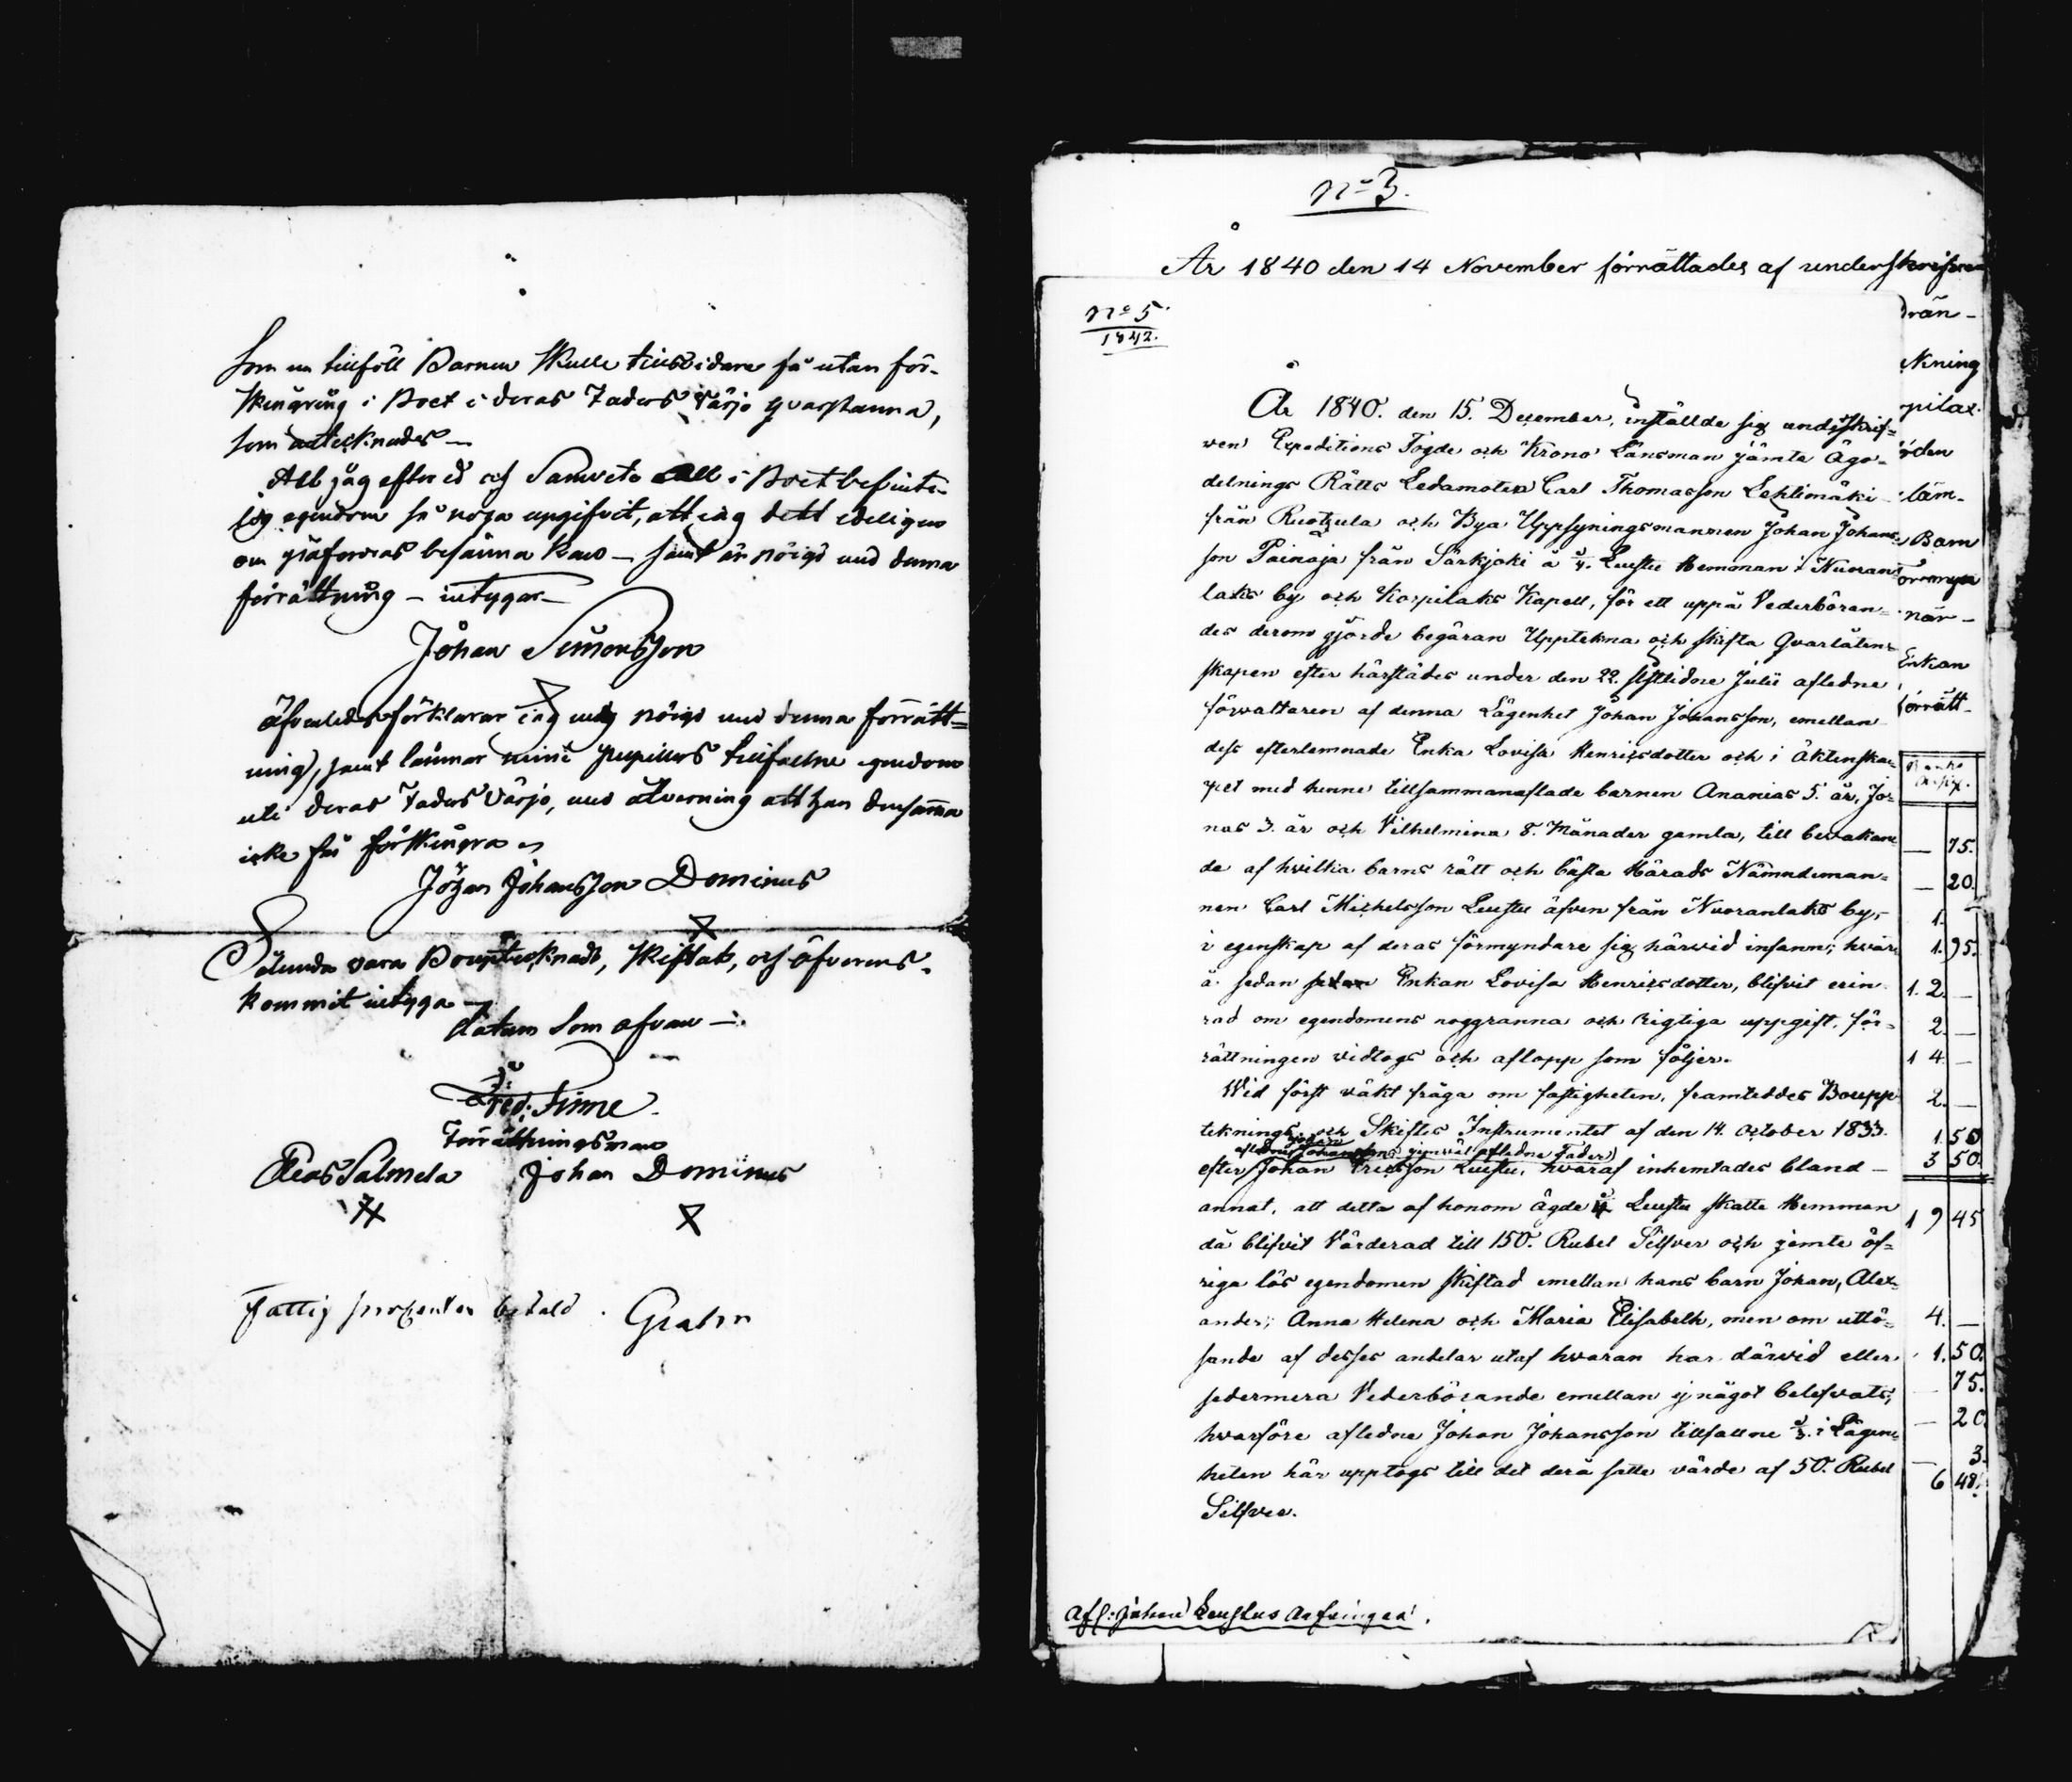 Som nu tillföll Barnen skulle tills vidare få utan för-
skingring i Boet i deras Faders värjo qvarstanna,
som antecknades —
Att jag efter ed och Samvete allt i Boet befinte-
lig egendom så noga upgifvit, att jag dett edeligen
om så fordras besanna kan — samt är nöigd med denna
förrättning — intygar —
Johan Simonsson
Äfvenledes förklarar jag mig nöigd med denna förrätt=
ning, samt lämnar mine pupillers tillfallne egendom
uti deras Faders värjo, med åtverning att han densamma
icke får förskingra
Johan Johansson Dominus
Sålunda vara Bouptecknadt, Skiftat, och öfverens-
kommit intyga —
datum som ofvan —
Fred: Finne
Förrättningsman
Elias Salmela Johan Dominus
Fattig procenten betald. Grahn
No 3.
År 1840 den 14 November förrättades af underskrifven
drän-
kning
pilax.
örden
läm-
Barn
örmyn
när-
Enkan
förrätt-
No 5.
1842.
År 1840. den 15. December, inställde sig underskrif=
ven Expeditions Fogde och Krono Länsman jämte Ägo-
delnings Rätts Ledamoten Carl Thomasson Lehtimäki
från Ruotzula och Bya Uppsyningsmannen Johan Johans-
son Painaja från Särkjoki å 1/4. Leustu Hemman i Nuoran-
laks by och Korpilaks Kapell, för ett uppå Vederböran=
des derom gjorde begäran Upptekna och skifta Qvarlåten=
skapen efter härstädes under den 22. sistlidne Julii aflednе
förvaltaren af denna Lägenhet Johan Johansson, emellan
dess efterlemnade Enka Lovisa Henricsdotter och i Äktenska-
pet med henne tillsammanaflade barnen Ananias 5. år, Jo-
nas 3. år och Vilhelmina 8. Månader gamla, till bevakan-
de af hvilka barns rätt och bästa Härads Nämndeman=
nen Carl Michelsson Leustu äfven från Nuoranlaks by,
i egenskap af deras förmyndare sig härvid infann; hvar-
å sedan Enkan Lovisa Henricsdotter, blifvit erin
rad om egendomens noggranna och rigtiga uppgift, för=
rättningen vidtogs och aflopp som följer.
Wid först väkt fråga om fastigheten, framteddes Boupp
teknings och Skiftes Instrumentet af den 14. October 1833.
aflednе Johanssons jemväl aflednе Fader
efter Johan Ericsson Leustu, hvaraf inhemtades bland —
annat, att detta af honom ägde 1/4 Leustu skatte Hemman
då blifvit Värderad till 150. Rubel Silfver och jemte öf=
riga lös egendomen skiftad emellan hans barn Johan, Alex-
ander, Anna Helena och Maria Elisabeth, men om utlö=
sande af desses andelar utaf hvaran har därvid eller
sedermera Vederbörande emellan ej något belefvats,
hvarföre aflednе Johan Johansson tillfallne 1/3. i Lägen=
heten här upptogs till det derå satte värde af 50. Rubel
Silfver.
Afl: Johan Leustus Arfvingar.
— 75.
— 20.
1.
1. 95.
1. 2. —
2. —
1 4 —
2. —
1. 50
3 50.
1 9 45
4. —
1. 50.
— 75.
— 20.
— 3.
6 48.